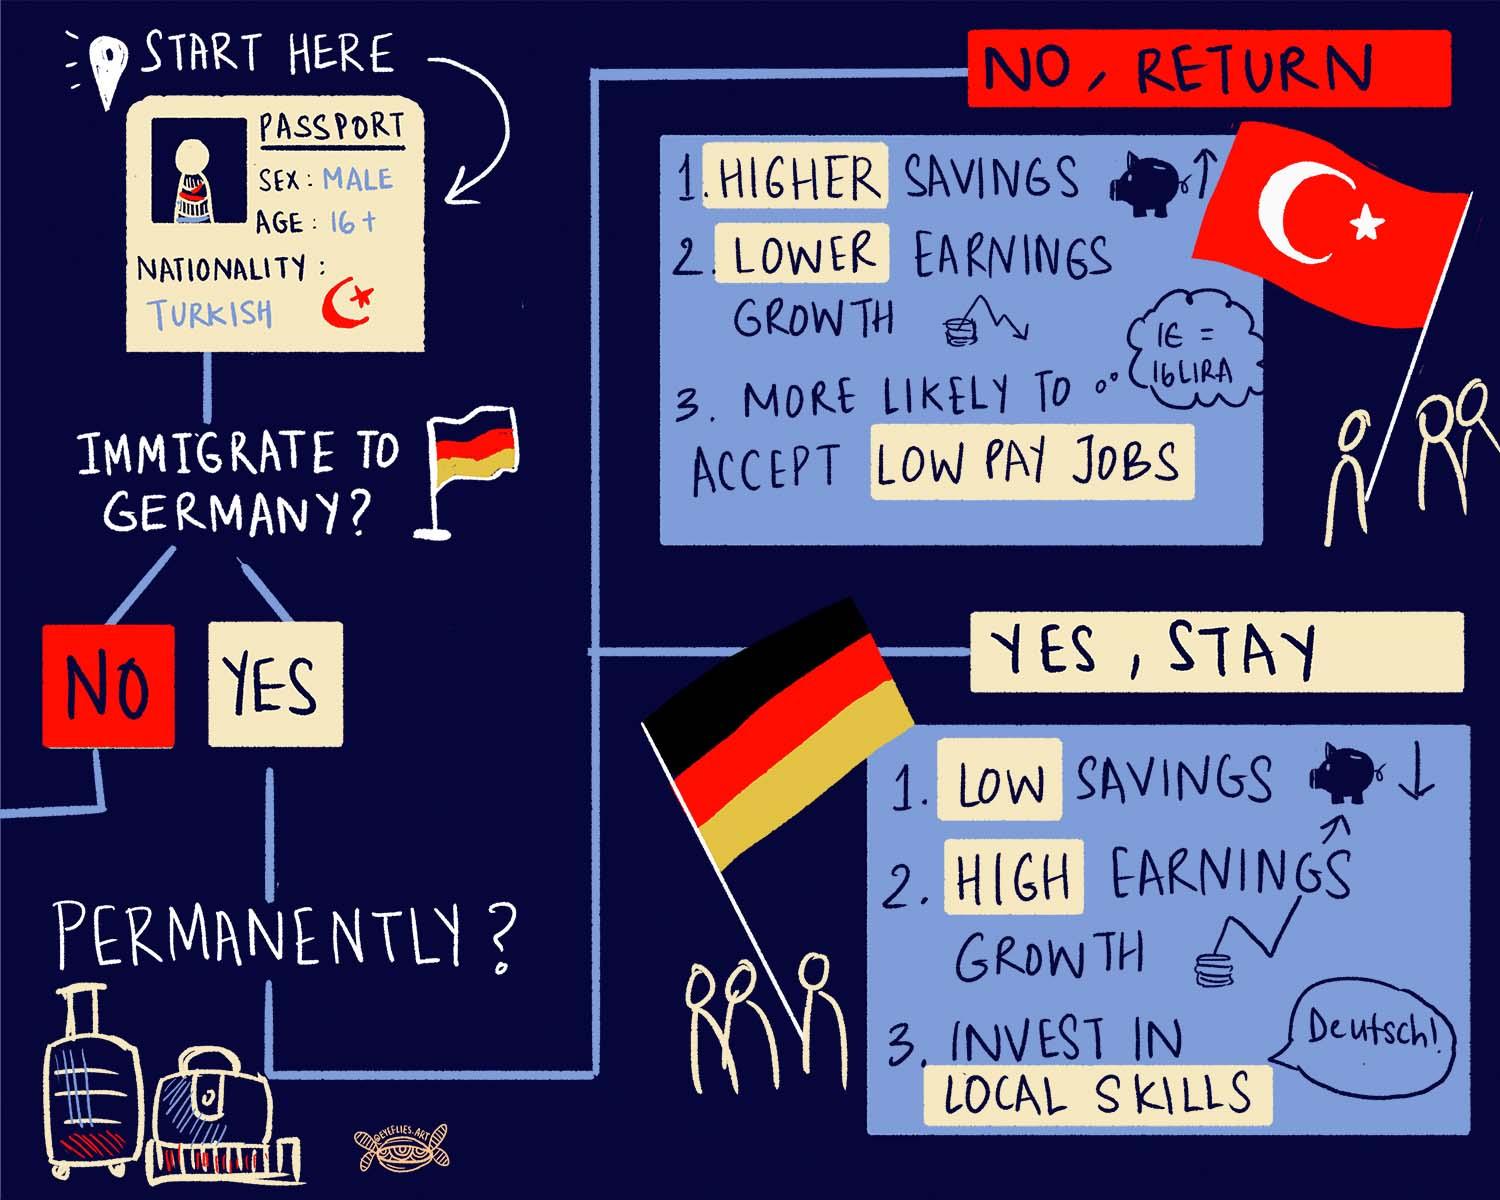 START HERE
PASSPORT
SEX: MALE
AGE: 16+
NATIONALITY:
TURKISH
IMMIGRATE TO
GERMANY?
NO
YES
PERMANENTLY?
@EYEFLIES.ART
NO, RETURN
1. HIGHER SAVINGS
2. LOWER EARNINGS
GROWTH
1€ =
16LIRA
3. MORE LIKELY TO
ACCEPT LOW PAY JOBS
YES, STAY
1. LOW SAVINGS
2. HIGH EARNINGS
GROWTH
3. INVEST IN
LOCAL SKILLS
Deutsch!